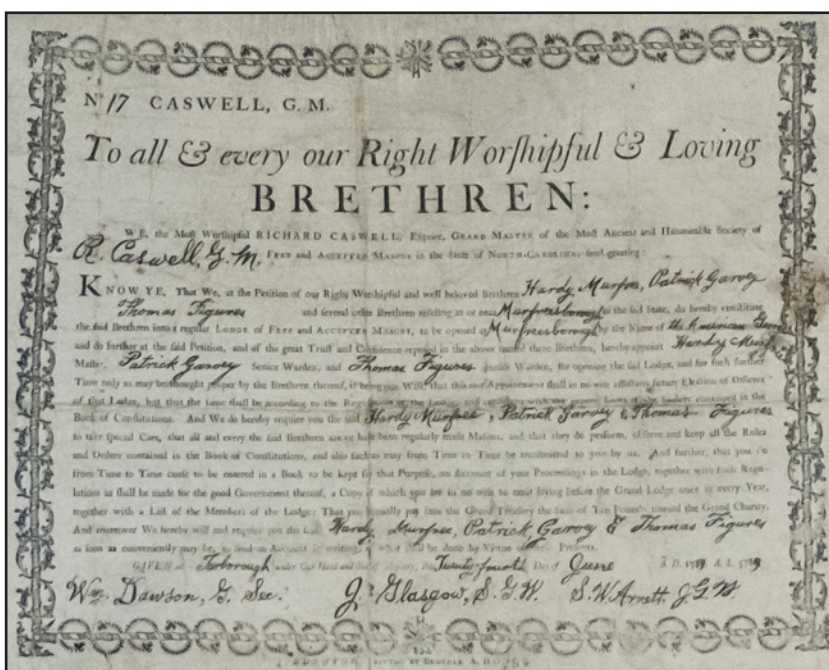 Nº 17 CASWELL, G. M.
To all & every our Right Worſhipful & Loving
BRETHREN:
WE, the Moſt Worſhipful RICHARD CASWELL, Eſquire, GRAND MASTER of the Moſt Ancient and Honourable Society of
R. Caswell, G. M. FREE and ACCEPTED MASONS in the State of NORTH-CAROLINA, ſend greeting:
KNOW YE, That We, at the Petition of our Right Worſhipful and well beloved Brethren Hardy Murfree, Patrick Garvey
Thomas Figures and ſeveral other Brethren reſiding at or near Murfreesborough in the ſaid State, do hereby conſtitute
the ſaid Brethren into a regular LODGE of FREE and ACCEPTED MASONS, to be opened at Murfreesborough by the Name of the American
and do further at the ſaid Petition, and of the great Truſt and Confidence repoſed in the above named three Brethren, hereby appoint Hardy Murfree
Maſter, Patrick Garvey Senior Warden, and Thomas Figures Junior Warden, for opening the ſaid Lodge, and for ſuch further
Time only as may be thought proper by the Brethren thereof, it being our Will, that this our Appointment ſhall in no wiſe affect any future Election of Officers
of that Lodge, but that the ſame ſhall be according to the of the Society contained in the
Book of Conſtitutions. And We do hereby require you the ſaid Hardy Murfree, Patrick Garvey & Thomas Figures
to take ſpecial Care, that all and every the ſaid Brethren are or have been regularly made Maſons, and that they do perform, obſerve and keep all the Rules
and Orders contained in the Book of Conſtitutions, and alſo ſuch as may from Time to Time be tranſmitted to you by us. And further, that you do
from Time to Time cauſe to be entered in a Book to be kept for that Purpoſe, an Account of your Proceedings in the Lodge, together with ſuch Regu-
lations as ſhall be made for the good Government thereof, a Copy of which you are in no wiſe to omit laying before the Grand Lodge once in every Year,
together with a Liſt of the Members of the Lodge: That you annually pay into the Grand Treaſury the Sum of Ten Pounds toward the Grand Charity.
And moreover We hereby will and require you the ſaid Hardy Murfree, Patrick, Garvey & Thomas Figures
as ſoon as conveniently may be, to ſend an Account in writing, of what ſhall be done by Virtue of theſe Preſents.
GIVEN at Tarborough under Our Hand and Seal of Maſonry, this Twenty fourth Day of June A. D. 1789 A. L. 5789
Wm. Dawson, G. Sec. J. Glasgow, S. G. W. S. W. Arnett. J. G. W.
EDENTON: PRINTED BY GEORGE A. HODGE